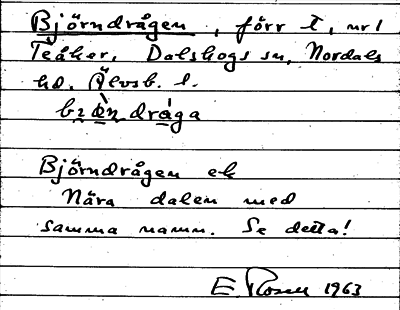 Björndrågen, förr t, nr 1
Teåker, Dalskogs sn, Nordals
hd. Älvsb. l.
bzö̀n dråga
Björndrågen ek
Nära dalen med
samma namn. Se detta!
E. Rosen 1963